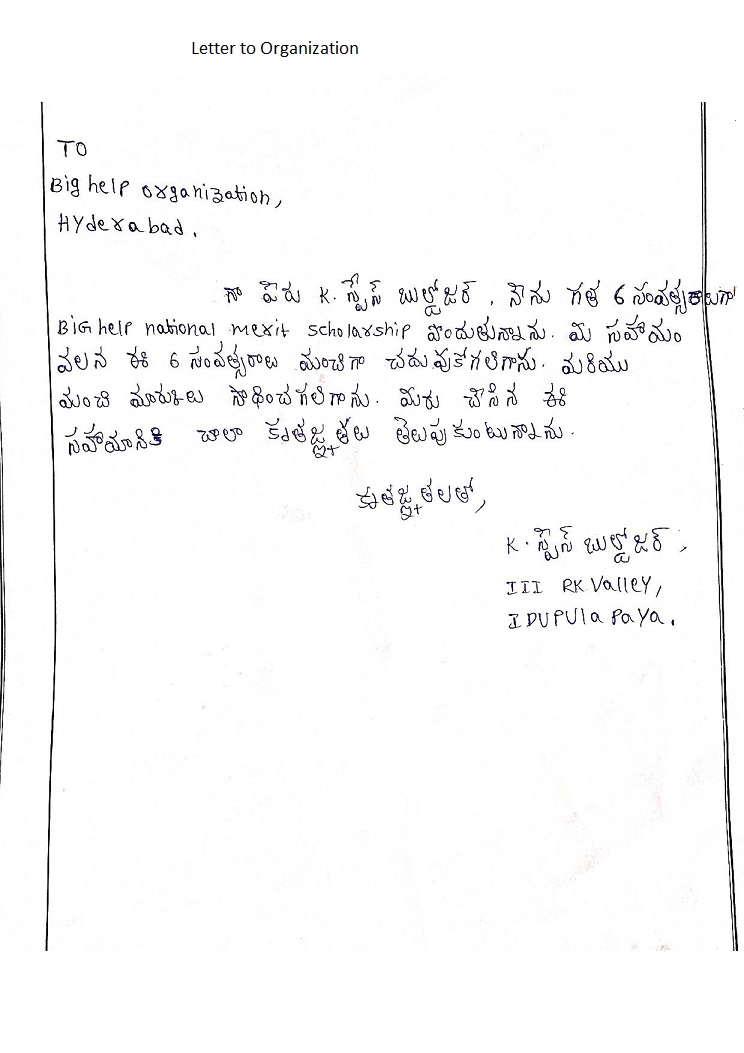 Letter to Organization
TO
Big help organization,
HYderabad.
నా పేరు K. స్పేస్ బుల్డోజర్, నేను గత 6 సంవత్సరాలుగా
BIG help national merit scholarship పొందుతున్నాను. మీ సహాయం
వలన ఈ 6 సంవత్సరాలు మంచిగా చదువుకోగలిగాను. మరియు
మంచి మార్కులు సాధించగలిగాను. మీరు చేసిన ఈ
సహాయానికి చాలా కృతజ్ఞతలు తెలుపుకుంటున్నాను.
కృతజ్ఞతలతో,
K. స్పేస్ బుల్డోజర్,
III RK Valley,
IDUPUlaPaYa.